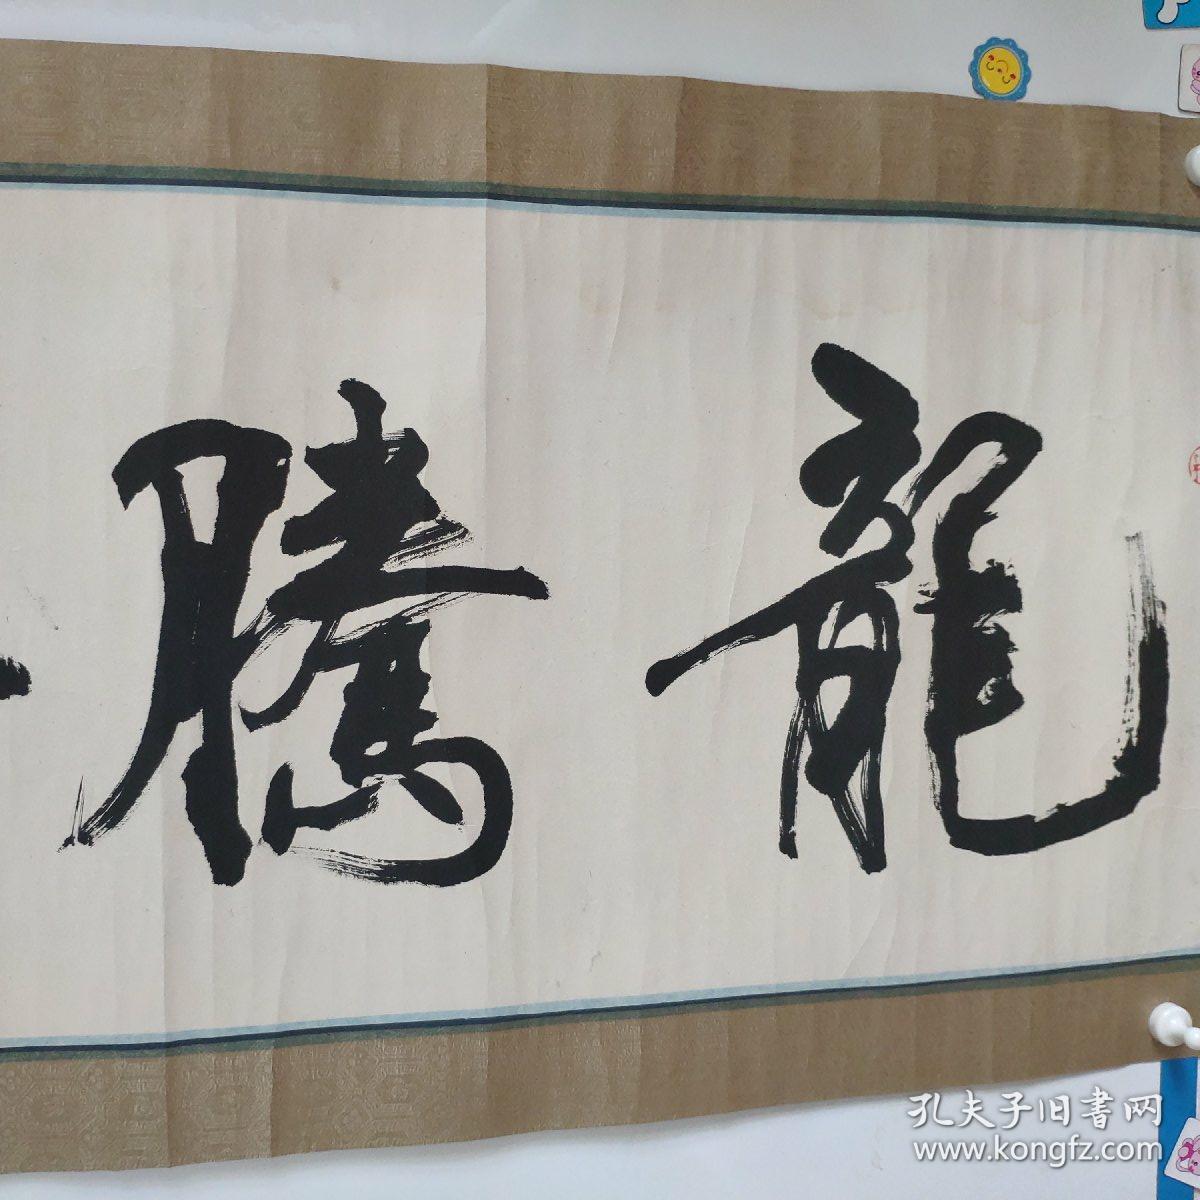 龍騰
孔夫子旧書网
www.kongfz.com